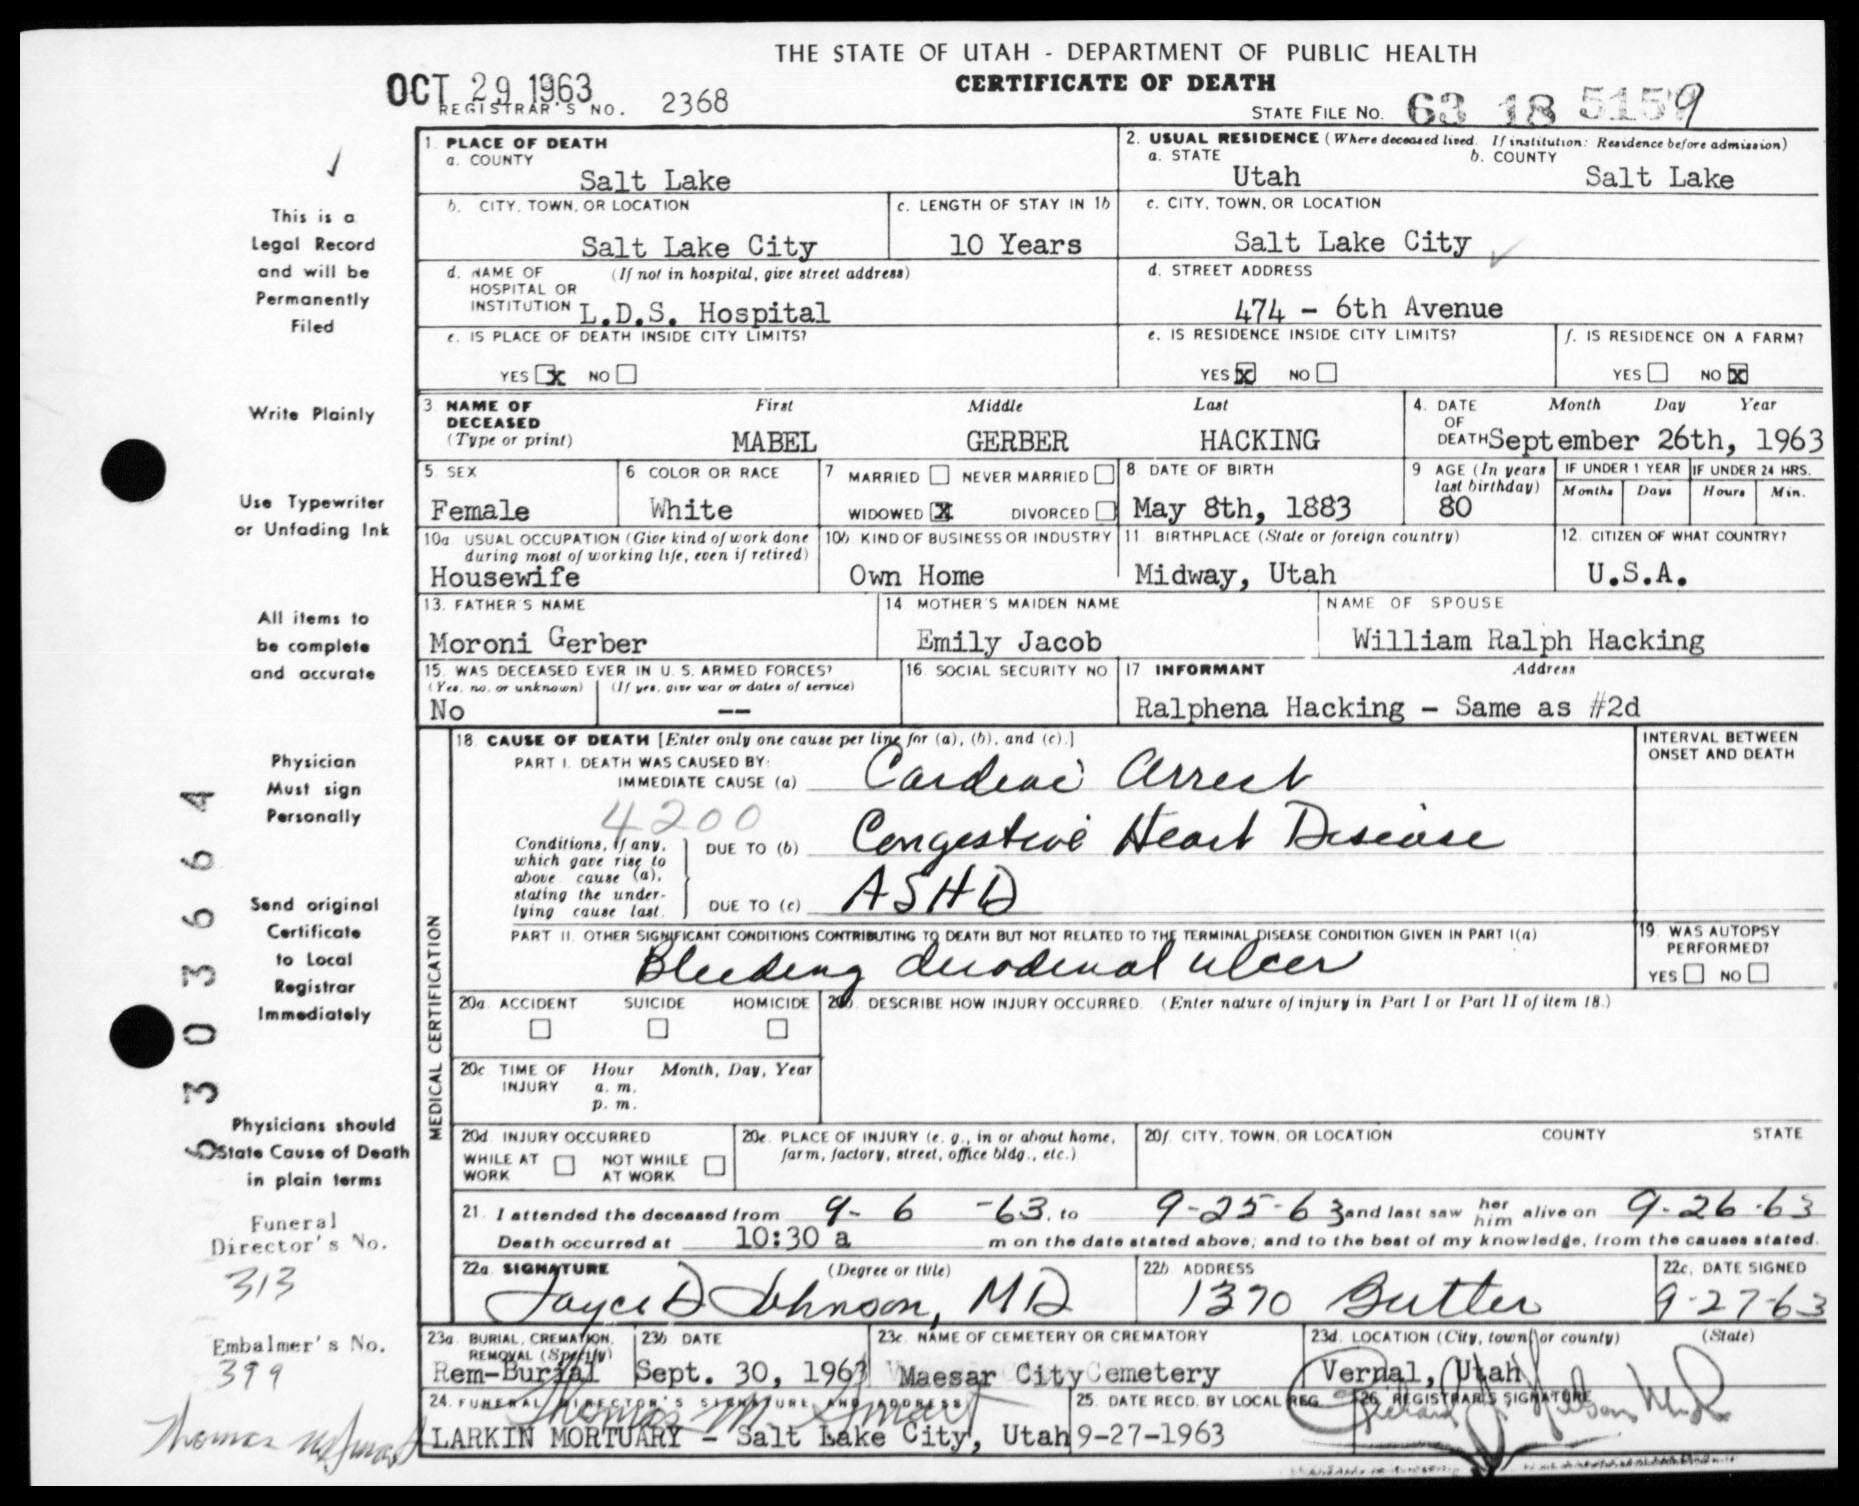 THE STATE OF UTAH - DEPARTMENT OF PUBLIC HEALTH
CERTIFICATE OF DEATH
OCT 29 1963
REGISTRAR'S NO. 2368
STATE FILE NO. 63 18 5159
This is a
Legal Record
and will be
Permanently
Filed
Write Plainly
Use Typewriter
or Unfading Ink
All items to
be complete
and accurate
Physician
Must sign
Personally
Send original
Certificate
to Local
Registrar
Immediately
Physicians should
State Cause of Death
in plain terms
Funeral
Director's No.
313
Embalmer's No.
399
6303664
1. PLACE OF DEATH
a. COUNTY
Salt Lake
2. USUAL RESIDENCE (Where deceased lived. If institution: Residence before admission)
a. STATE b. COUNTY
Utah Salt Lake
b. CITY, TOWN, OR LOCATION
Salt Lake City
c. LENGTH OF STAY IN 1b
10 Years
c. CITY, TOWN, OR LOCATION
Salt Lake City
d. NAME OF (If not in hospital, give street address)
HOSPITAL OR
INSTITUTION L.D.S. Hospital
d. STREET ADDRESS
474 - 6th Avenue
e. IS PLACE OF DEATH INSIDE CITY LIMITS?
YES X NO
e. IS RESIDENCE INSIDE CITY LIMITS?
YES X NO
f. IS RESIDENCE ON A FARM?
YES NO X
3. NAME OF First Middle Last
DECEASED
(Type or print) MABEL GERBER HACKING
4. DATE Month Day Year
OF
DEATH September 26th, 1963
5. SEX
Female
6 COLOR OR RACE
White
7 MARRIED NEVER MARRIED
WIDOWED X DIVORCED
8 DATE OF BIRTH
May 8th, 1883
9 AGE (In years
last birthday)
80
IF UNDER 1 YEAR IF UNDER 24 HRS.
Months Days Hours Min.
10a USUAL OCCUPATION (Give kind of work done
during most of working life, even if retired)
Housewife
10b KIND OF BUSINESS OR INDUSTRY
Own Home
11 BIRTHPLACE (State or foreign country)
Midway, Utah
12. CITIZEN OF WHAT COUNTRY?
U.S.A.
13. FATHER'S NAME
Moroni Gerber
14 MOTHER'S MAIDEN NAME
Emily Jacob
NAME OF SPOUSE
William Ralph Hacking
15. WAS DECEASED EVER IN U. S. ARMED FORCES?
(Yes, no, or unknown) (If yes, give war or dates of service)
No --
16. SOCIAL SECURITY NO
17 INFORMANT Address
Ralphena Hacking - Same as #2d
MEDICAL CERTIFICATION
18. CAUSE OF DEATH [Enter only one cause per line for (a), (b), and (c).]
INTERVAL BETWEEN
ONSET AND DEATH
PART I. DEATH WAS CAUSED BY:
IMMEDIATE CAUSE (a) Cardiac Arrest
4200
Conditions, if any,
which gave rise to
above cause (a),
stating the under-
lying cause last.
DUE TO (b) Congestive Heart Disease
DUE TO (c) ASHD
PART II. OTHER SIGNIFICANT CONDITIONS CONTRIBUTING TO DEATH BUT NOT RELATED TO THE TERMINAL DISEASE CONDITION GIVEN IN PART I(a)
Bleeding duodenal ulcer
19. WAS AUTOPSY
PERFORMED?
YES NO
20a. ACCIDENT SUICIDE HOMICIDE
20b. DESCRIBE HOW INJURY OCCURRED. (Enter nature of injury in Part I or Part II of item 18.)
20c TIME OF Hour Month, Day, Year
INJURY a. m.
p. m.
20d. INJURY OCCURRED
WHILE AT NOT WHILE
WORK AT WORK
20e. PLACE OF INJURY (e. g., in or about home,
farm, factory, street, office bldg., etc.)
20f. CITY, TOWN, OR LOCATION COUNTY STATE
21. I attended the deceased from 9-6-63, to 9-25-63 and last saw her him alive on 9-26-63
Death occurred at 10:30 a m on the date stated above; and to the best of my knowledge, from the causes stated.
22a. SIGNATURE (Degree or title)
Joyce D Johnson, MD
22b ADDRESS
1370 Butler
22c. DATE SIGNED
9-27-63
23a. BURIAL, CREMATION,
REMOVAL (Specify)
Rem-Burial
23b DATE
Sept. 30, 1963
23c. NAME OF CEMETERY OR CREMATORY
Maesar City Cemetery
23d. LOCATION (City, town, or county) (State)
Vernal, Utah
24. FUNERAL DIRECTOR'S SIGNATURE AND ADDRESS
Thomas M. Smart
LARKIN MORTUARY - Salt Lake City, Utah
25. DATE RECD. BY LOCAL REG.
9-27-1963
26. REGISTRAR'S SIGNATURE
Thomas M Smart